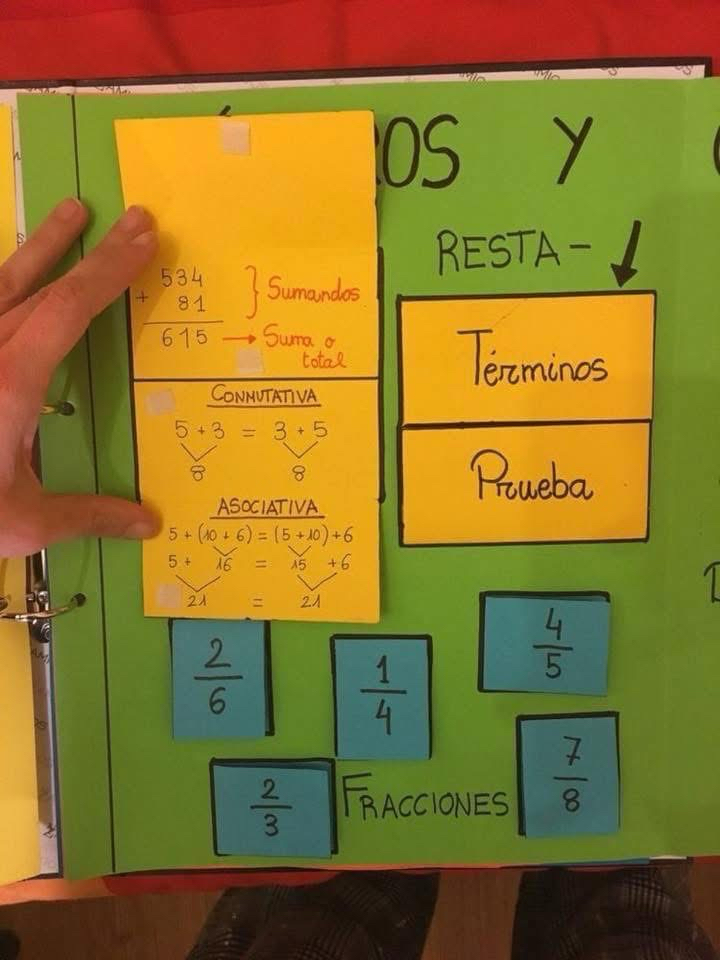 ROS Y
RESTA -
534
+ 81
615
} Sumandos
→ Suma o total
CONMUTATIVA
5 + 3 = 3 + 5
8 8
ASOCIATIVA
5 + (10 + 6) = (5 + 10) + 6
5 + 16 = 15 + 6
21 = 21
Términos
Prueba
2/6
1/4
4/5
2/3
FRACCIONES
7/8